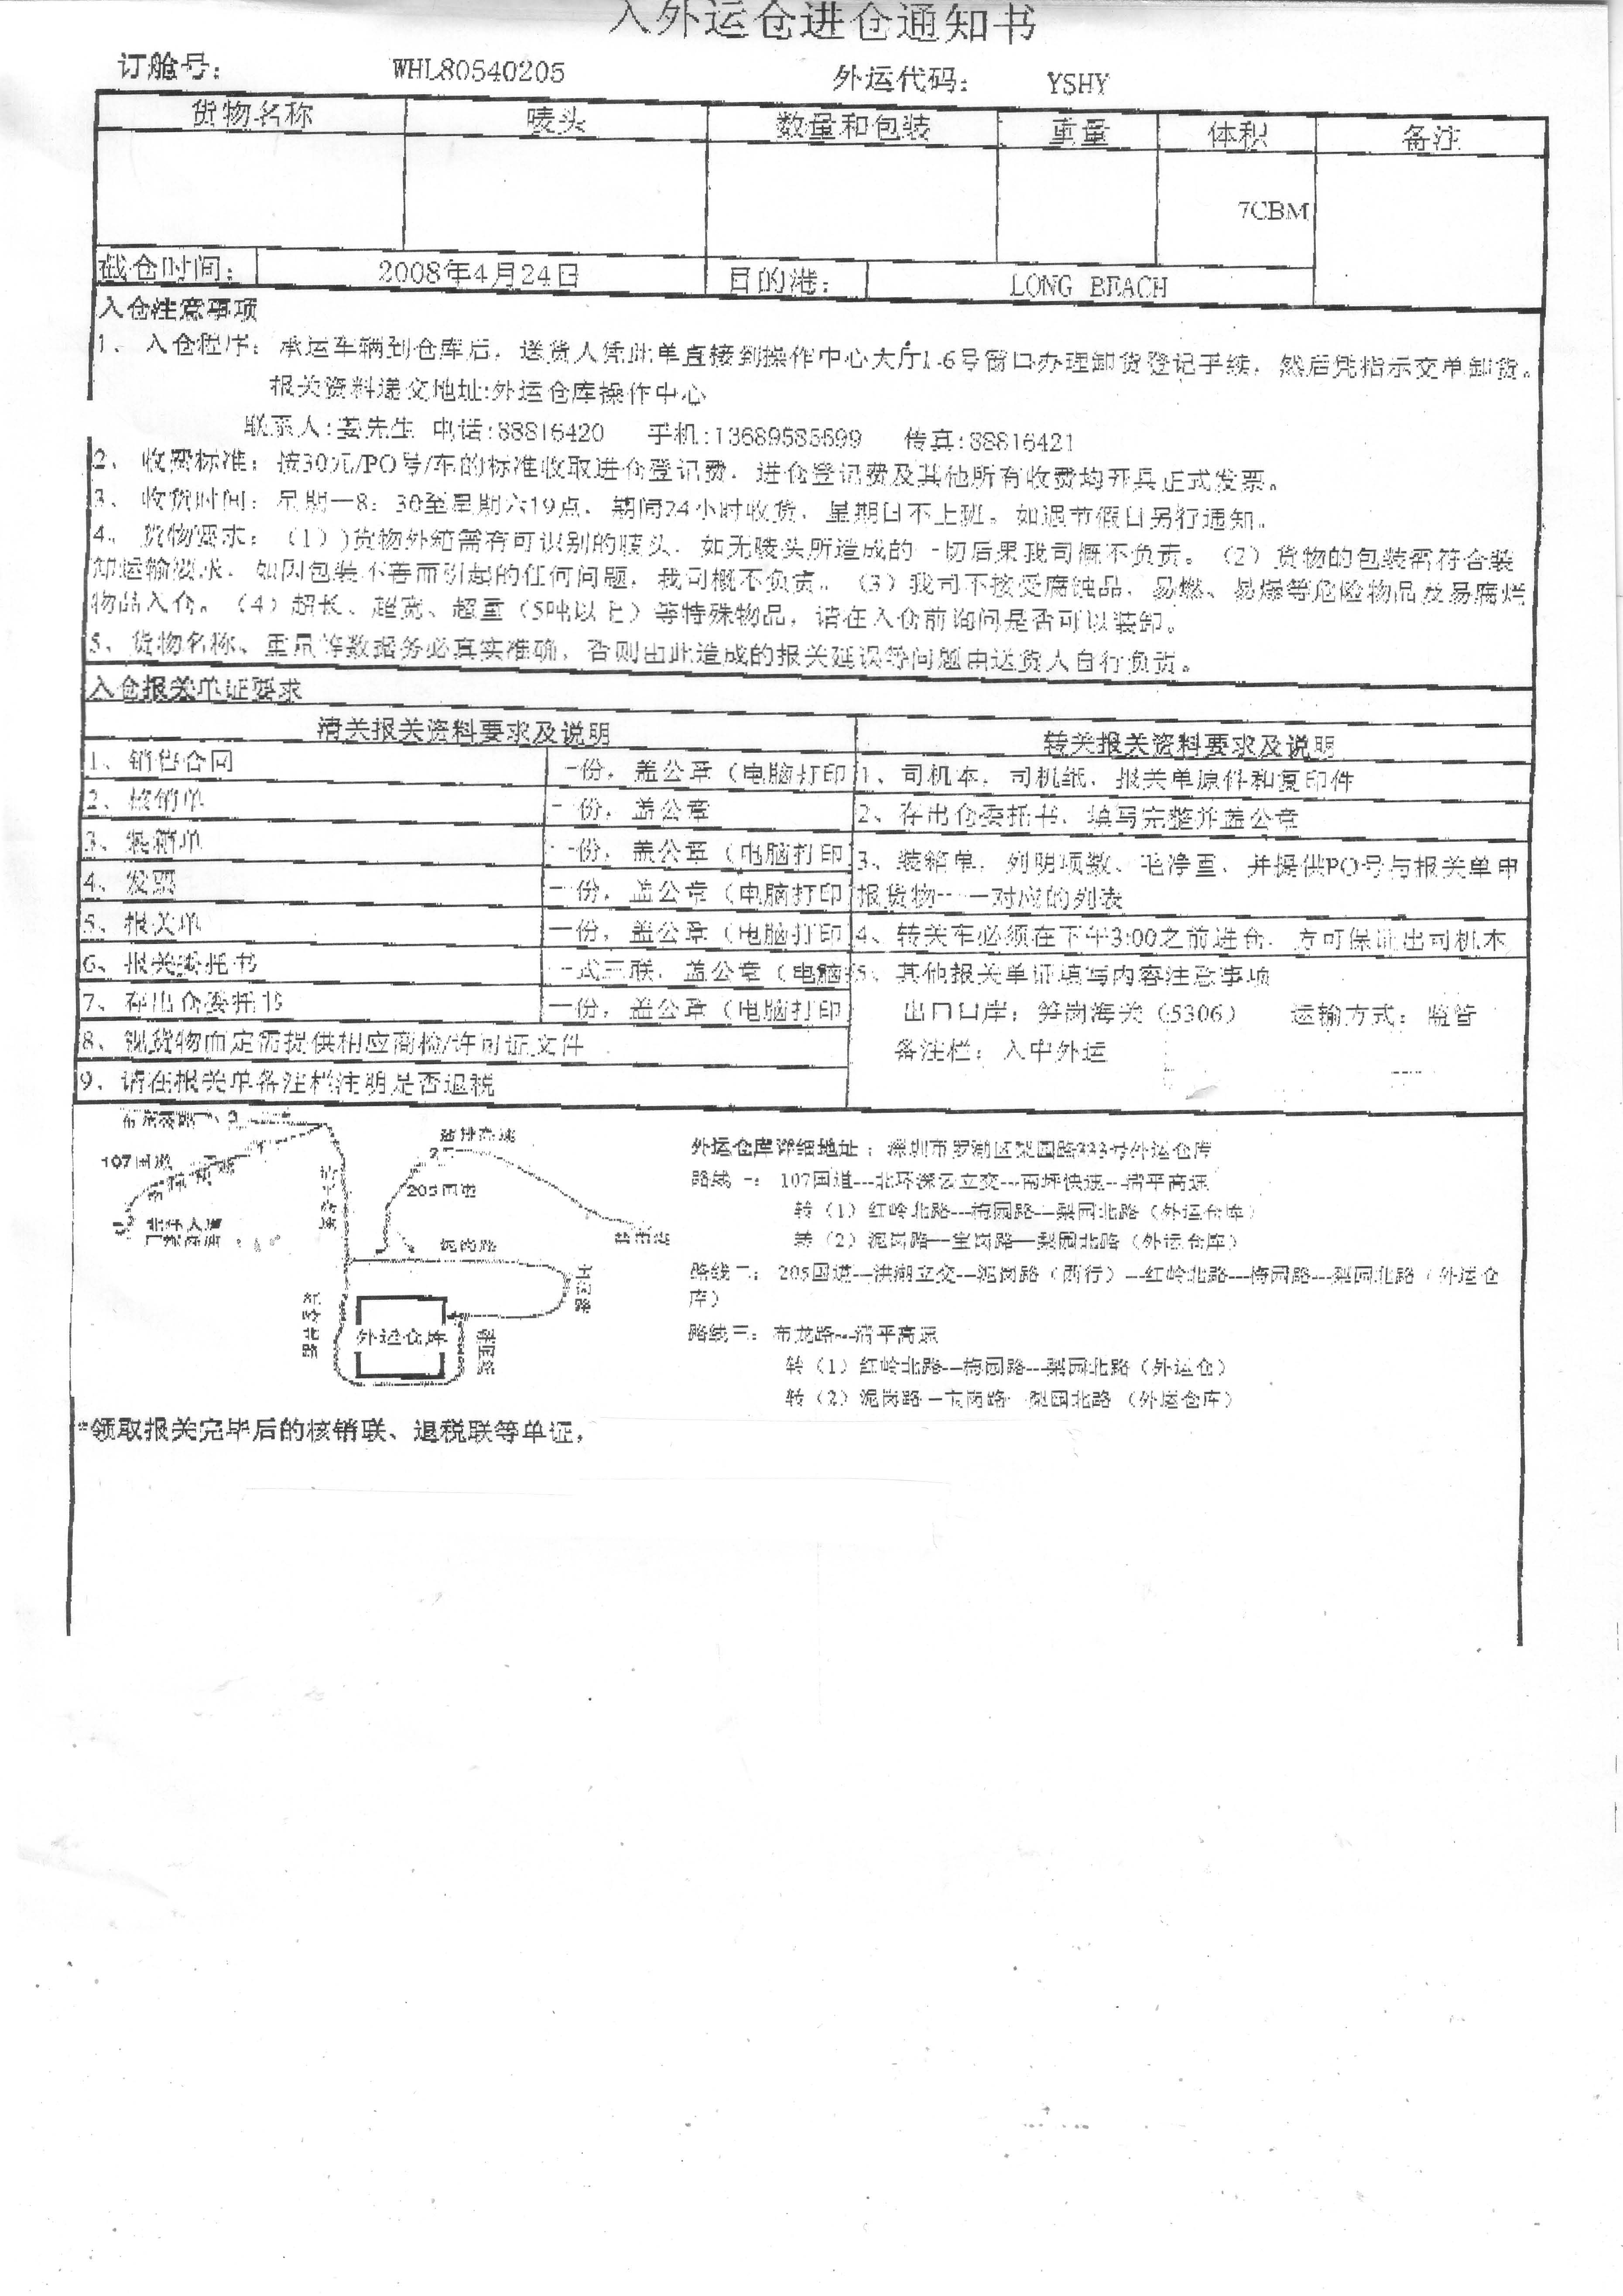 入外运仓进仓通知书
订舱号： WHL80540205 外运代码： YSHY
货物名称 唛头 数量和包装 重量 体积 备注
7CBM
截仓时间： 2008年4月24日 目的港： LONG BEACH
入仓注意事项
1、入仓程序：承运车辆到仓库后，送货人凭此单直接到操作中心大厅1-6号窗口办理卸货登记手续，然后凭指示交单卸货。
报关资料递交地址:外运仓库操作中心
联系人:姜先生 电话:88816420 手机:13689585699 传真:88816421
2、收费标准：按30元/PO号/车的标准收取进仓登记费，进仓登记费及其他所有收费均开具正式发票。
3、收货时间：星期一8：30至星期六19点，期间24小时收货，星期日不上班。如遇节假日另行通知。
4、货物要求：（1）)货物外箱需有可识别的唛头，如无唛头所造成的一切后果我司概不负责。（2）货物的包装需符合装
卸运输要求，如因包装不善而引起的任何问题，我司概不负责。（3）我司不接受腐蚀品，易燃、易爆等危险物品及易腐烂
物品入仓。（4）超长、超宽、超重（5吨以上）等特殊物品，请在入仓前询问是否可以装卸。
5、货物名称、重量等数据务必真实准确，否则由此造成的报关延误等问题由送货人自行负责。
入仓报关单证要求
清关报关资料要求及说明 转关报关资料要求及说明
1、销售合同 一份，盖公章（电脑打印 1、司机本，司机纸，报关单原件和复印件
2、核销单 一份，盖公章 2、存出仓委托书，填写完整并盖公章
3、装箱单 一份，盖公章（电脑打印 3、装箱单，列明项数、毛净重，并提供PO号与报关单申
4、发票 一份，盖公章（电脑打印 报货物一一对应的列表
5、报关单 一份，盖公章（电脑打印 4、转关车必须在下午3:00之前进仓，方可保证出司机本
6、报关委托书 一式三联，盖公章（电脑打 5、其他报关单证填写内容注意事项
7、存出仓委托书 一份，盖公章（电脑打印 出口口岸：笋岗海关（5306） 运输方式：监管
8、视货物而定需提供相应商检/许可证文件 备注栏：入中外运
9、请在报关单备注栏注明是否退税
107国道
205国道
泥岗路
外运仓库
外运仓库详细地址：深圳市罗湖区梨园路333号外运仓库
路线一：107国道---北环深云立交---南坪快速---清平高速
转（1）红岭北路---梅园路---梨园北路（外运仓库）
转（2）泥岗路---宝岗路---梨园北路（外运仓库）
路线二：205国道---洪湖立交---泥岗路（西行）---红岭北路---梅园路---梨园北路（外运仓
库）
路线三：布龙路---清平高速
转（1）红岭北路---梅园路---梨园北路（外运仓）
转（2）泥岗路---宝岗路---梨园北路（外运仓库）
*领取报关完毕后的核销联、退税联等单证，